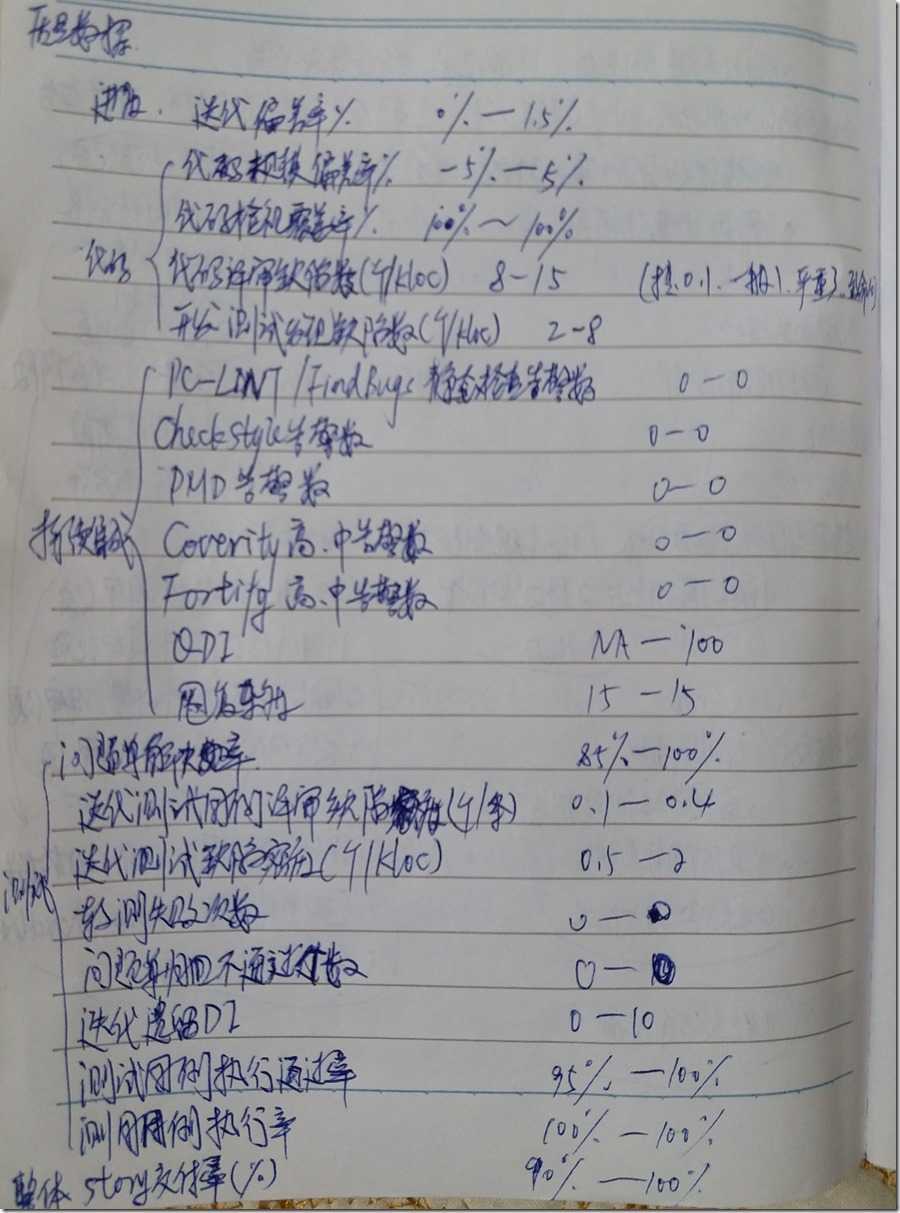 质量数据
进度. 迭代偏差率% 0%—1.5%
代码规模偏差率% -5%—5%
代码检视覆盖率% 100%~100%
代码 代码评审缺陷数(个/kloc) 8-15 (提示0.1.一般1.严重3.致命10)
开发测试发现缺陷数(个/kloc) 2-8
PC-LINT/FindBugs静态检查告警数 0—0
Checkstyle告警数 0-0
PMD告警数 0-0
持续集成 Coverity高.中告警数 0—0
Fortify高.中告警数 0—0
QDI NA—100
圈复杂度 15—15
问题单解决率 85%—100%
迭代测试用例评审缺陷密度(个/条) 0.1—0.4
迭代测试缺陷密度(个/kloc) 0.5—2
测试 转测失败次数 0—
问题单归回不通过个数 0—
迭代遗留DI 0-10
测试用例执行通过率 95%—100%
测用用例执行率 100%—100%
整体 story交付率(%) 90%—100%